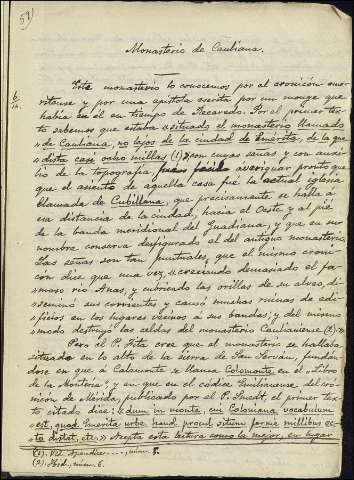 59)
Monasterio de Cauliana.
Este monasterio lo conocemos por el cronicón emer-
itense y por una epístola escrita por un monge que
había en él en tiempo de Recaredo. Por el primer tex-
to sabemos que estaba «situado el monasterio llamado
»de Cauliana, no lejos de la ciudad de Emérita, de la que
»dista casi ocho millas (1)»; con cuyas señas y con auxi-
lio de la topografía, fácil averiguar pronto que
que el asiento de aquella casa fué la actual iglesia
llamada de Cubillana, que precisamente se halla á
esa distancia de la ciudad, hacia el Oeste y al pié
de la banda meridional del Guadiana, y que en su
nombre conserva desfigurado el del antiguo monasterio.
Las señas son tan puntuales, que el mismo croni-
cón dice que una vez, «creciendo demasiado el fa-
»moso río Anas, y cubriendo las orillas de su alveo, di-
»seminó sus corrientes y causó muchas ruinas de edi-
»ficios en los lugares vecinos á sus bandas; y del mismo
»modo destruyó las celdas del monasterio Caulianiense (2).»
Pero el P. Fita cree que el monasterio se hallaba
situado en lo alto de la sierra de San Serván, fundán-
dose en que á Calamonte se llama Colomonte en el «Libro
de la Montería» y en que en el códice Emilianense del cro-
nicón de Mérida, publicado por el P. Smedt, el primer tex-
to citado dice: «dum in monte, cui Coliciana vocabulum
»est, quod Emerita urbe haud procul situm fere millibus oc-
»to distat, etc.» Acepta esta lectura como la mejor, en lugar
(1). Vid. Apéndice..., núm. 5.
(2). Ibid., núm. 6.